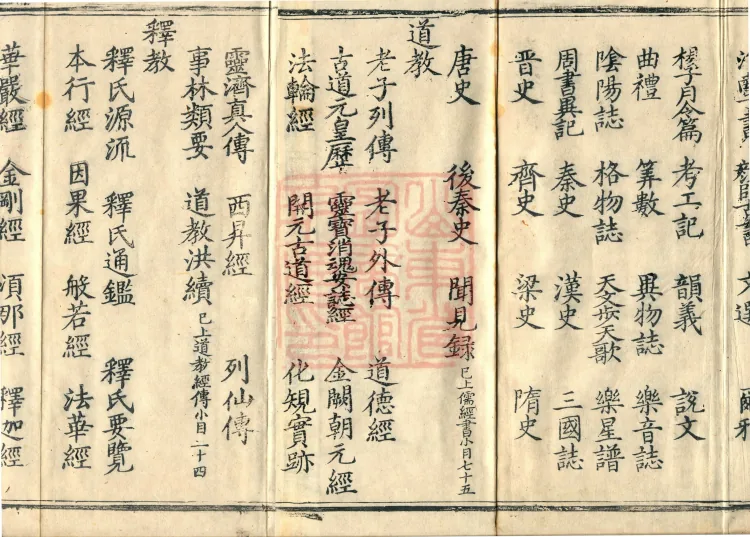 考工記 韻義 說文
曲禮 筭數 異物誌 樂音誌
陰陽誌 格物誌 天文步天歌 樂星譜
周書異記 秦史 漢史 三國誌
晋史 齊史 梁史 隋史
唐史 後秦史 聞見録 已上儒經書小目七十五
道教
老子列傳 老子外傳 道德經
古道元皇曆 靈寶消魂安誌經 金闕朝元經
法輪經 開元古道經 化規實跡
靈濟真人傳 西昇經 列仙傳
事林類要 道教洪續 已上道教經傳小目二十四
釋教
釋氏源流 釋氏通鑑 釋氏要覽
本行經 因果經 般若經 法華經
華嚴經 金剛經 湏那經 釋迦經